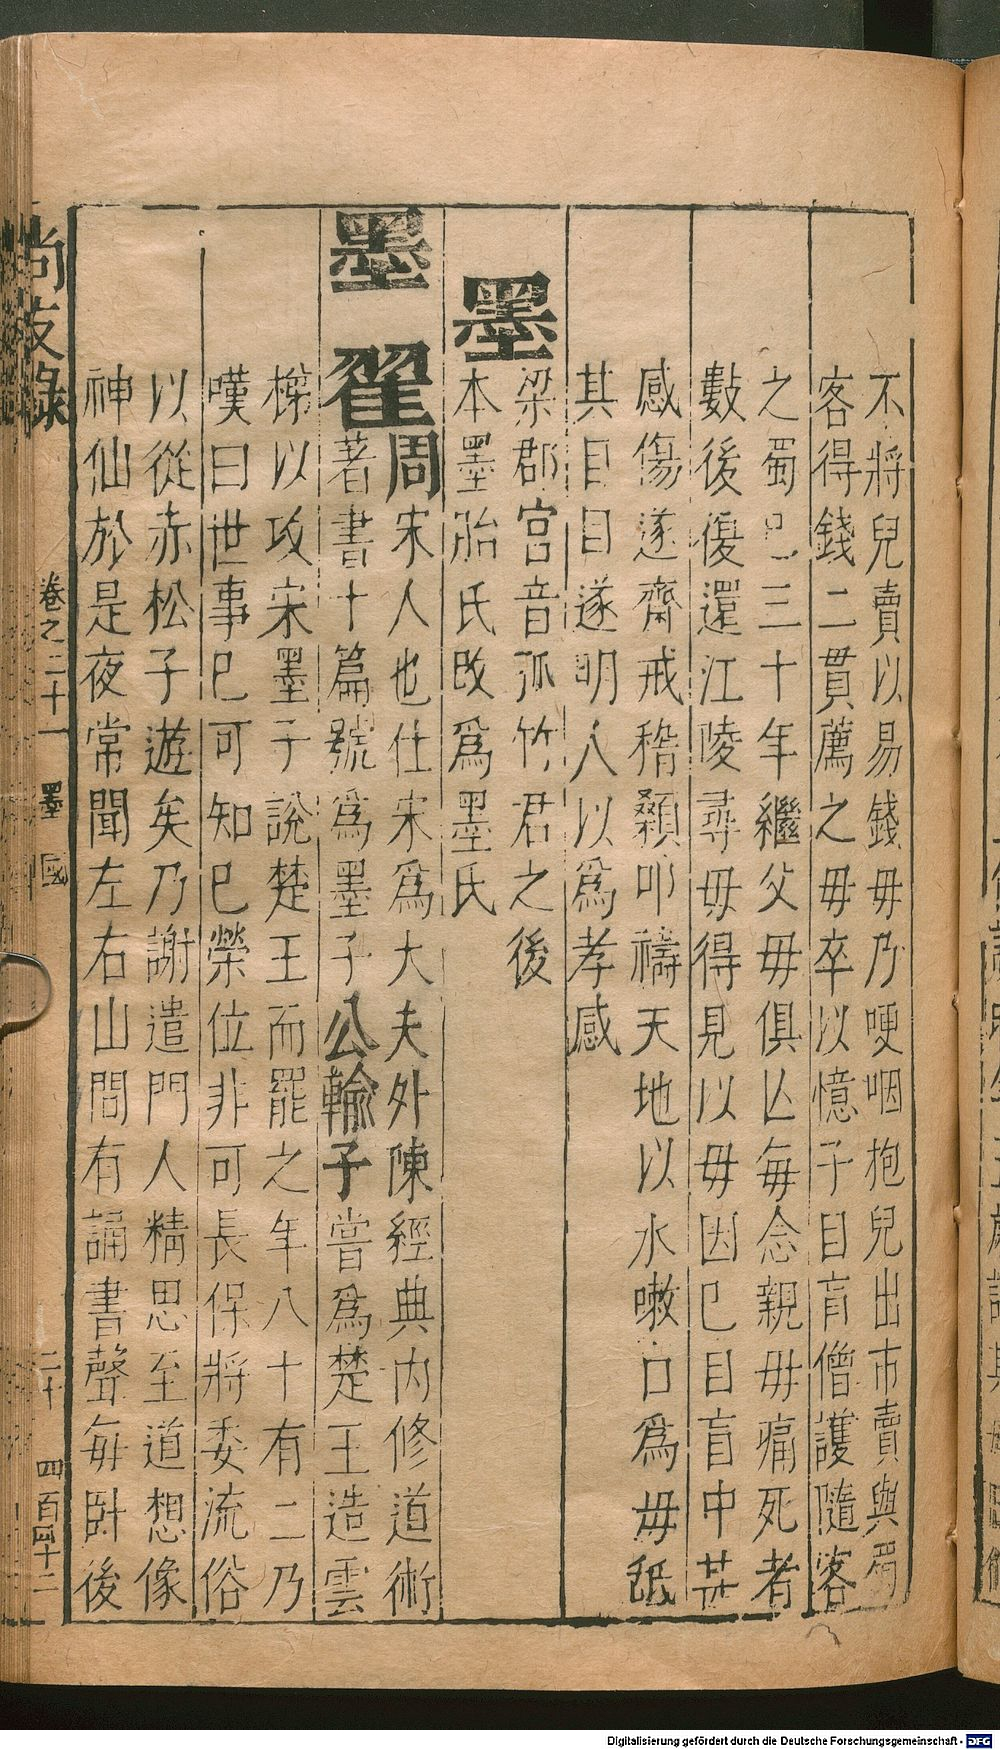 不將兒賣以易錢毋乃哽咽抱兒出市賣與蜀
客得錢二貫薦之毋卒以憶子目盲僧護隨客
之蜀巳三十年繼父毋俱亾每念親毋痛死者
數後復還江陵尋毋得見以毋因巳目盲中甚
感傷遂齋戒稽顙叩禱天地以水嗽口為毋舐
其目目遂明人以為孝感
墨
梁郡宮音孤竹君之後
本墨胎氏改為墨氏
墨翟
周宋人也仕宋為大夫外陳經典內修道術
著書十篇號為墨子公輸子嘗為楚王造雲
梯以攻宋墨子說楚王而罷之年八十有二乃
嘆曰世事巳可知巳榮位非可長保將委流俗
以從赤松子遊矣乃謝遣門人精思至道想像
神仙於是夜常聞左右山間有誦書聲每臥後
尚友錄
卷之二十一
墨
國
二十
四百四十二
Digitalisierung gefördert durch die Deutsche Forschungsgemeinschaft - DFG